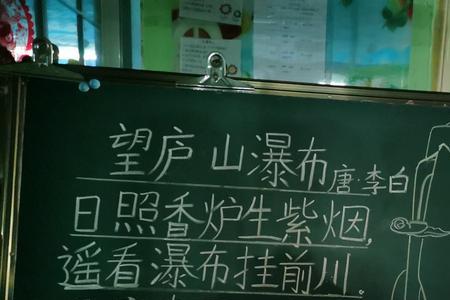 望庐山瀑布 唐·李白
日照香炉生紫烟,
遥看瀑布挂前川。